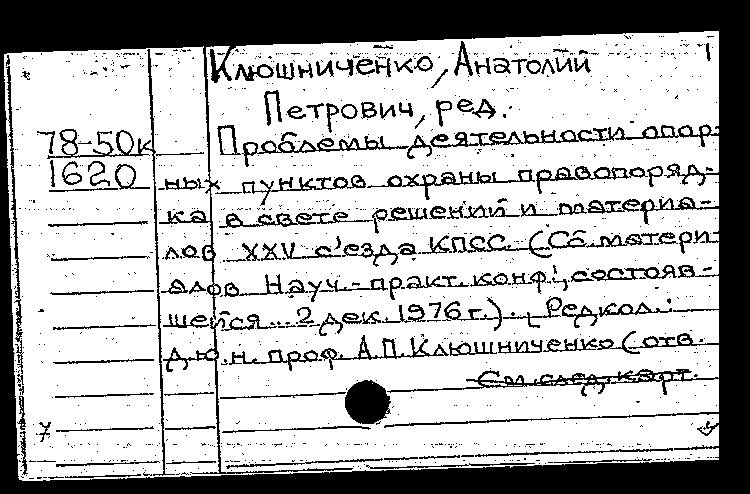 1
Клюшниченко, Анатолий
Петрович, ред.
78-50к Проблемы деятельности опор-
1620 ных пунктов охраны правопоряд-
ка в свете решений и материа-
лов XXV с'езда КПСС. (Сб. матери-
алов Науч.-практ. конф., состояв-
шейся ... 2 дек. 1976 г.). [Редкол.:
д.ю.н. проф. А.П. Клюшниченко (отв.
См. след. карт.
7